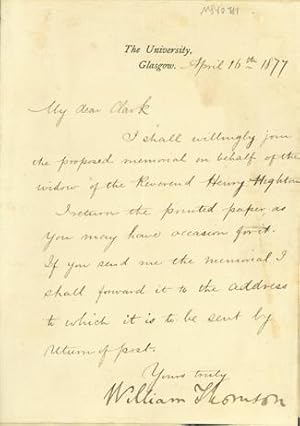 The University,
Glasgow. April 16th 1877
My dear Clark
I shall willingly join
the proposed memorial on behalf of the
widow of the Reverend Henry Highton
I return the printed paper as
you may have occasion for it.
If you send me the memorial I
shall forward it to the address
to which it is to be sent by
return of post.
Yours truly
William Thomson